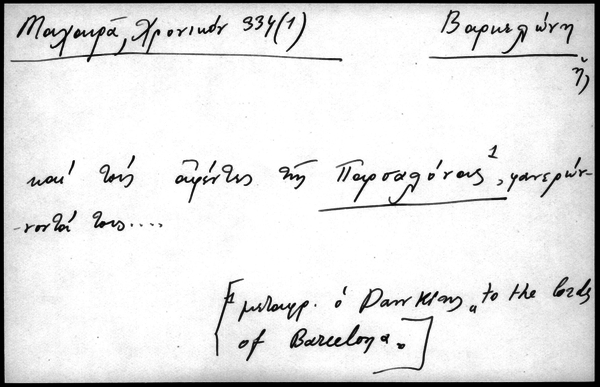 Μαχαιρά, Χρονικόν 334(1) Βαρκελώνη
ἡ,
καί τούς ἀφέντες τῆς Παρσαλόνας¹, φανερών-
-νοντά τους....
[1 μεταφρ. ὁ Dawkins „to the lords
of Barcelona„]